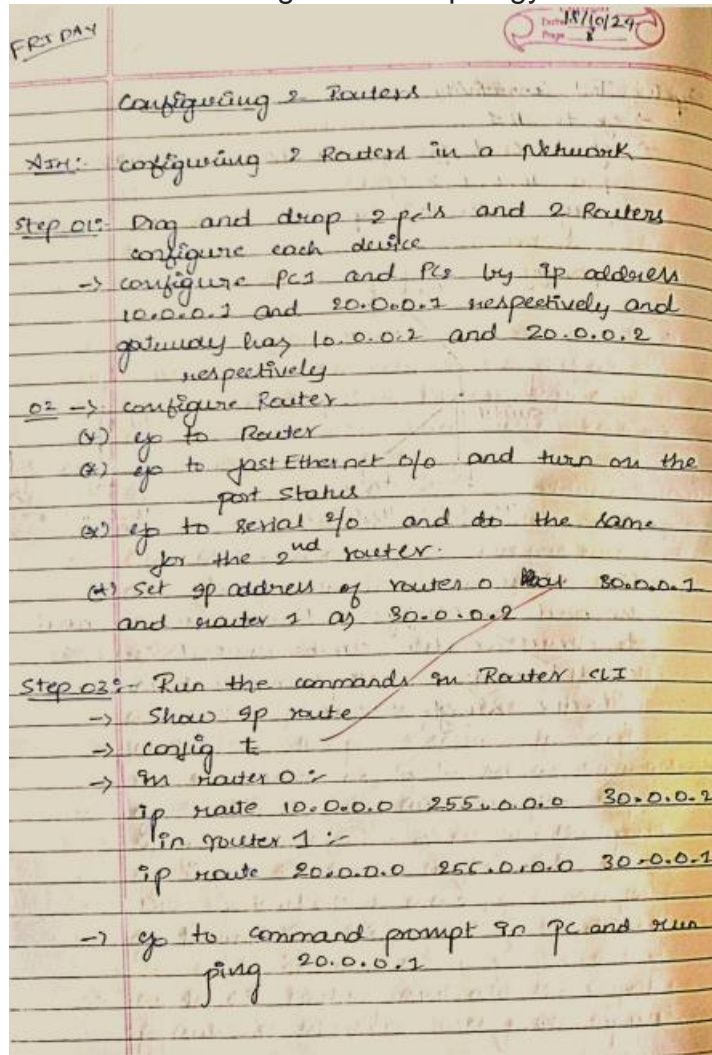 FRIDAY
Date 18/10/24
Page 8
Configuring 2 Routers
AIM: configuring 2 Routers in a Network
Step 01:- Drag and drop 2 pc's and 2 Routers
configure each device
-> configure PC1 and PC2 by ip address
10.0.0.1 and 20.0.0.1 respectively and
gateway has 10.0.0.2 and 20.0.0.2
respectively
02 -> configure Router
(*) go to Router
(*) go to fastEthernet 0/0 and turn on the
port status
(*) go to serial 2/0 and do the same
for the 2nd router.
(*) Set ip address of router 0 30.0.0.1
and router 1 as 30.0.0.2
Step 03:- Run the commands in Router CLI
-> Show ip route
-> config t
-> In router 0 :-
ip route 10.0.0.0 255.0.0.0 30.0.0.2
in router 1 :-
ip route 20.0.0.0 255.0.0.0 30.0.0.1
-> go to command prompt in pc and run
ping 20.0.0.1